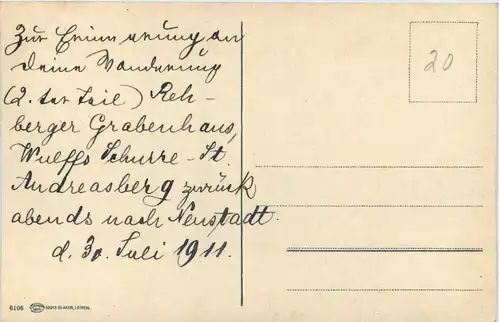 Zur Erinnerung an
deine Wanderung
(2. ter Teil) Reh-
berger Grabenhaus,
Wulffs Schurre - St.
Andreasberg zurück
abends nach Neustadt.
d. 30. Juli 1911.
20
6106 LEIPZIG.